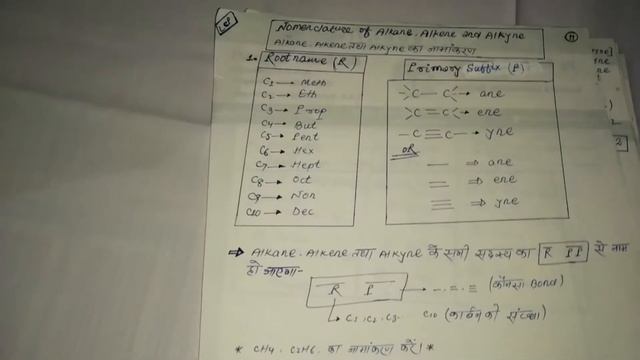 Nomenclature of Alkane, Alkene and Alkyne
Alkane, Alkene तथा Alkyne का नामांकरण
11
1. Root name (R)
C1 → Meth
C2 → Eth
C3 → Prop
C4 → But
C5 → Pent
C6 → Hex
C7 → Hept
C8 → Oct
C9 → Non
C10 → Dec
Primary Suffix (P)
>C—C< → ane
>C=C< → ene
—C≡C— → yne
OR
— ⇒ ane
= ⇒ ene
≡ ⇒ yne
⇒ Alkane, Alkene तथा Alkyne के सभी सदस्य का R P से नाम
हो जाएगा-
R P → -, =, ≡ (कौनसा Bond)
→ C1, C2, C3- C10 (कार्बन की संख्या)
* CH4, C2H6, का नामांकरण करें।